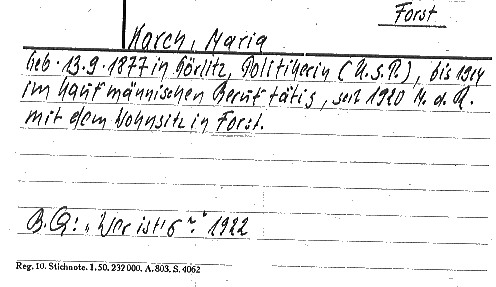 Forst
Karch, Maria
Geb. 13.9.1877 in Görlitz, Politikerin (U.S.P.), bis 1914
im kaufmännischen Beruf tätig, seit 1920 M.d.R.
mit dem Wohnsitz in Forst.
B.Q.: "Wer ist's?" 1922
Reg. 10. Stichnote. 1. 50. 232 000. A. 803. S. 4062